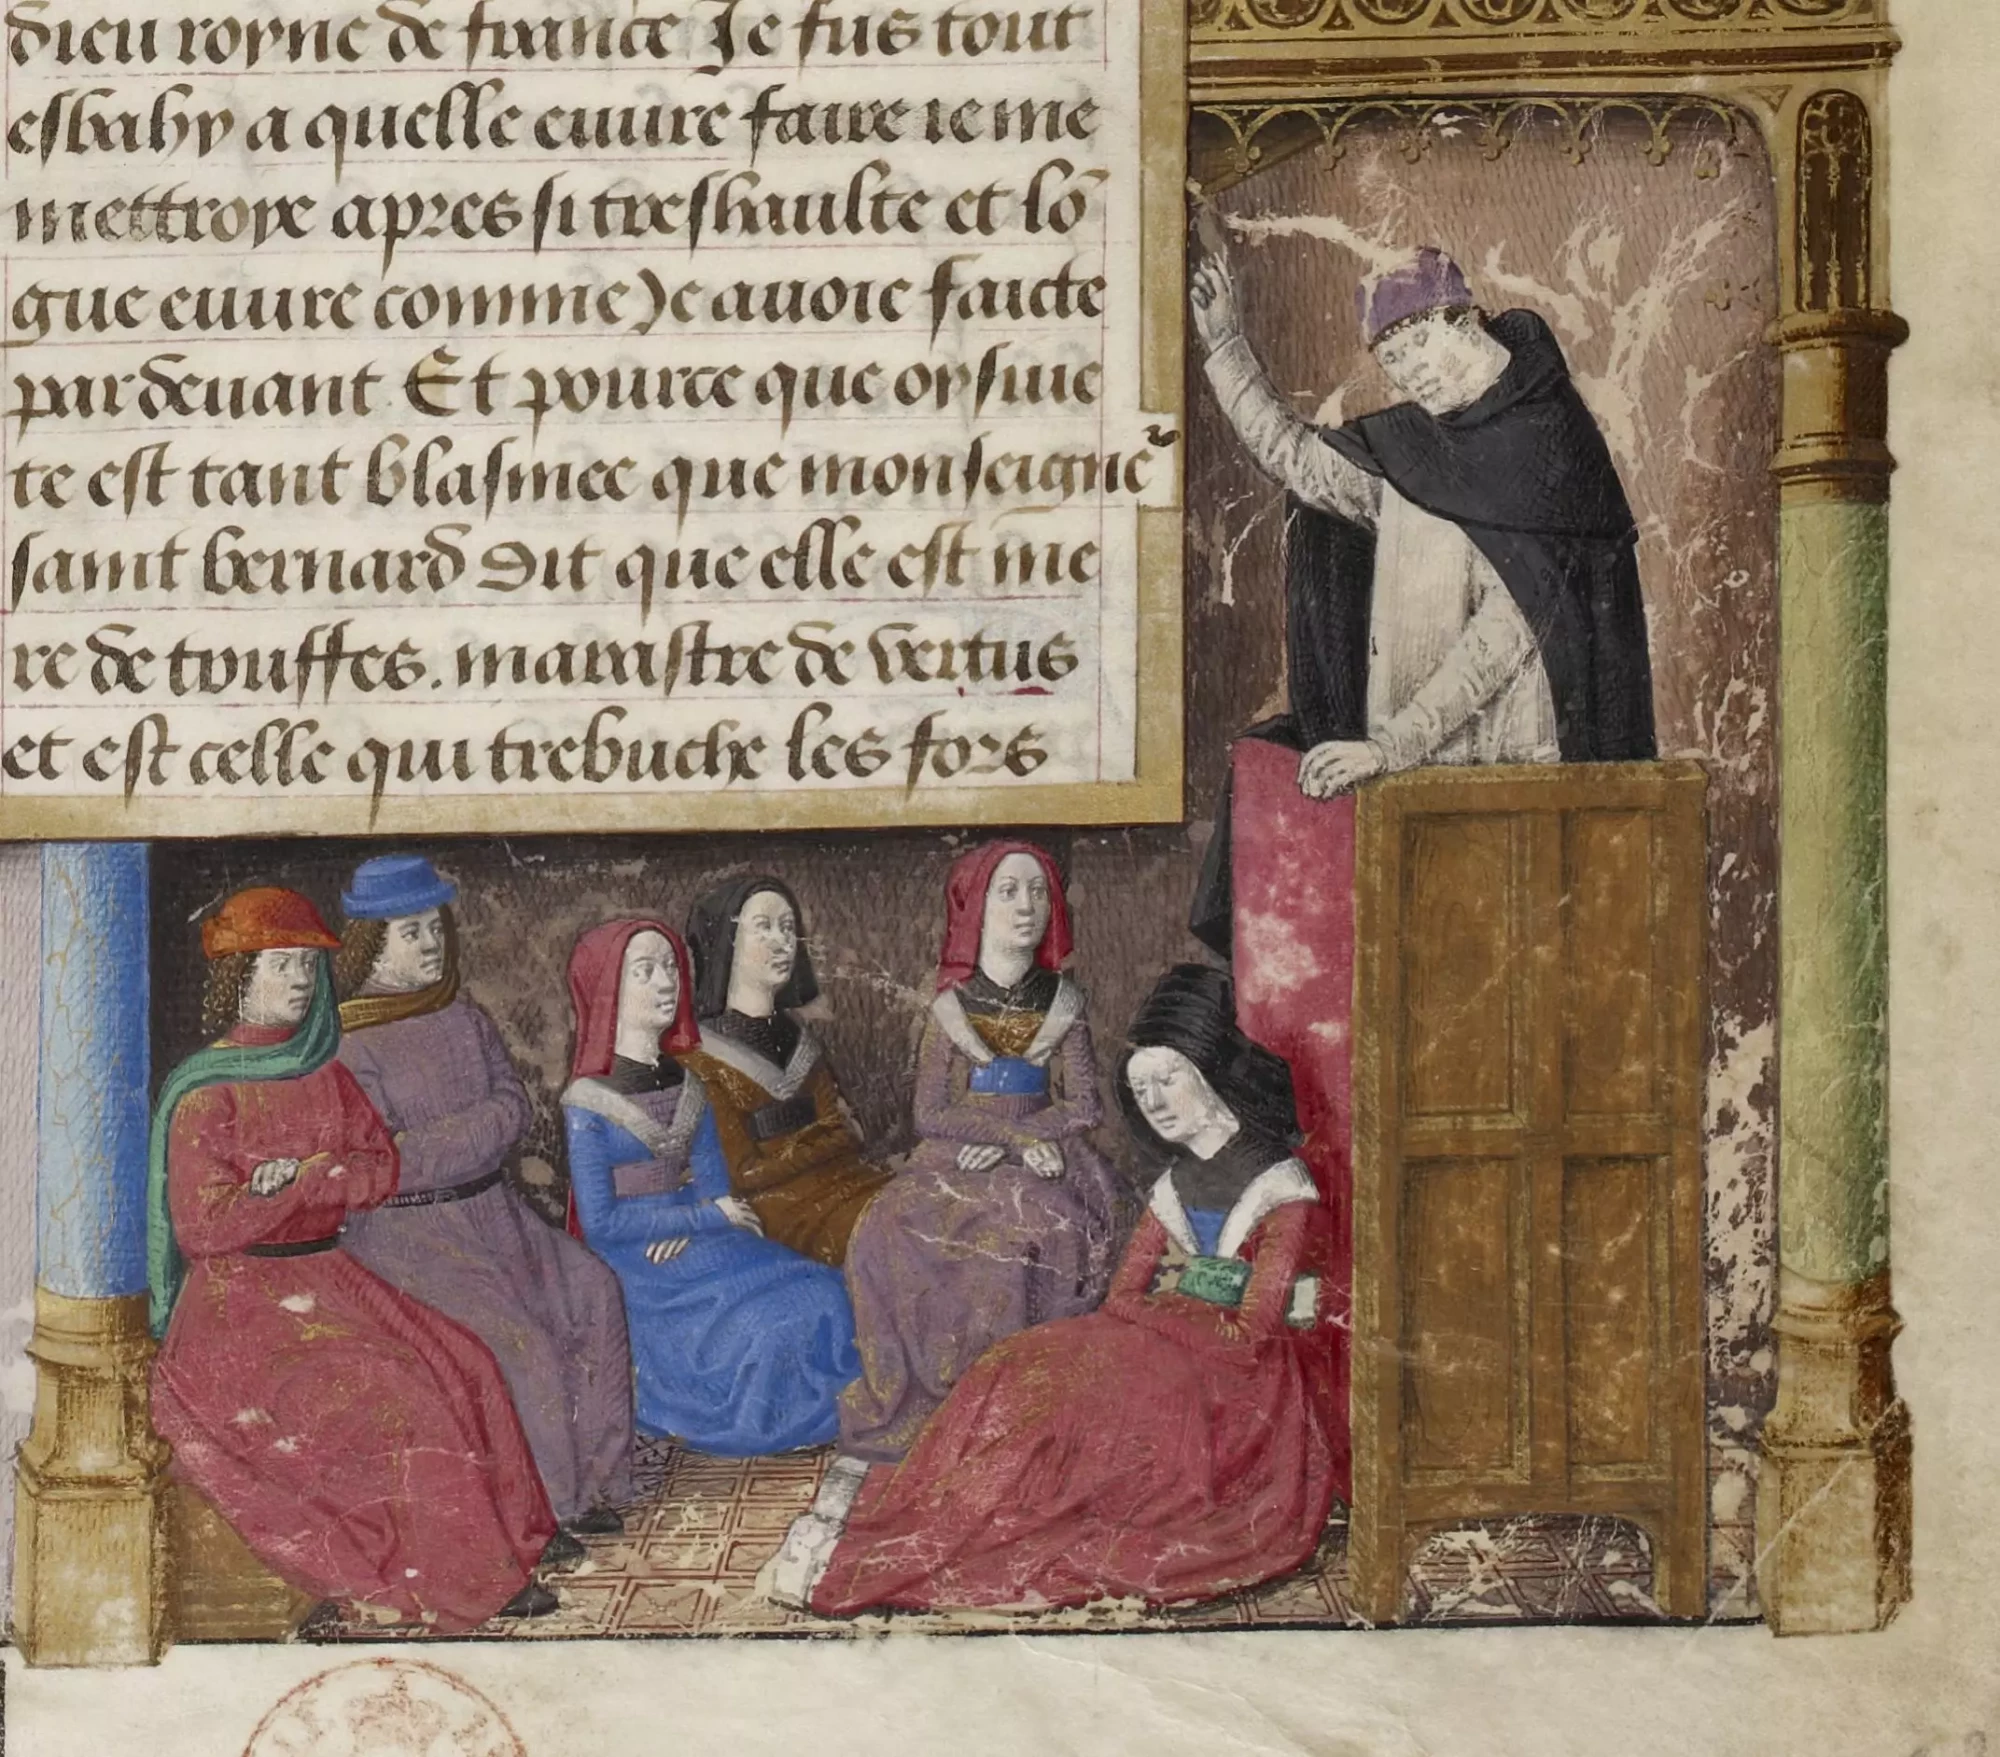 dieu royne de france Je fus tout
esbahy a quelle euure faire ie me
mettroye apres si treshaulte et lō
gue euure comme Je auoie faicte
par deuant Et pource que oysiue
te est tant blasmee que monseignē
saint bernard dit que elle est me
re de trouffes. marastre de vertus
et est celle qui trebuche les fors